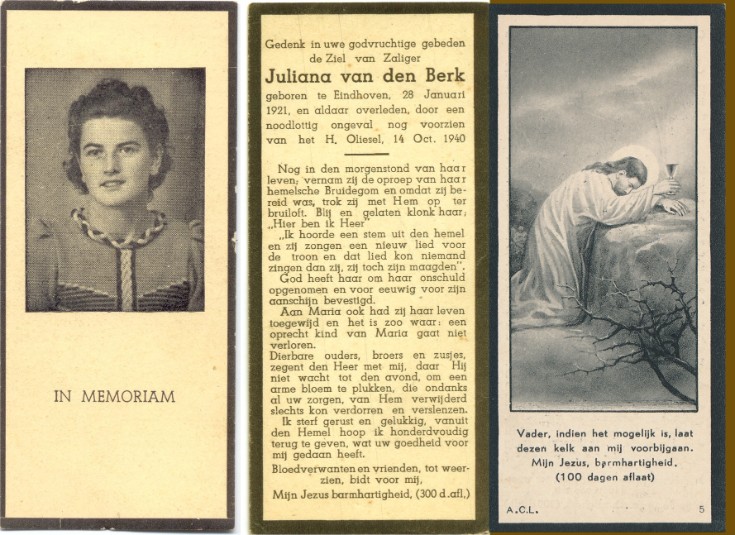 IN MEMORIAM
Gedenk in uwe godvruchtige gebeden
de Ziel van Zaliger
Juliana van den Berk
geboren te Eindhoven, 28 Januari
1921, en aldaar overleden, door een
noodlottig ongeval nog voorzien
van het H. Oliesel, 14 Oct. 1940
Nog in den morgenstond van haar
leven; vernam zij de oproep van haar
hemelsche Bruidegom en omdat zij be-
reid was, trok zij met Hem op ter
bruiloft. Blij en gelaten klonk haar;
„Hier ben ik Heer"
„Ik hoorde een stem uit den hemel
en zij zongen een nieuw lied voor
de troon en dat lied kon niemand
zingen dan zij, zij toch zijn maagden".
God heeft haar om haar onschuld
opgenomen en voor eeuwig voor zijn
aanschijn bevestigd.
Aan Maria ook had zij haar leven
toegewijd en het is zoo waar: een
oprecht kind van Maria gaat niet
verloren.
Dierbare ouders, broers en zusjes,
zegent den Heer met mij, daar Hij
niet wacht tot den avond, om een
arme bloem te plukken, die ondanks
al uw zorgen, van Hem verwijderd
slechts kon verdorren en verslenzen.
Ik sterf gerust en gelukkig, vanuit
den Hemel hoop ik honderdvoudig
terug te geven, wat uw goedheid voor
mij gedaan heeft.
Bloedverwanten en vrienden, tot weer-
zien, bidt voor mij,
Mijn Jezus barmhartigheid, (300 d.afl.)
Vader, indien het mogelijk is, laat
dezen kelk aan mij voorbijgaan.
Mijn Jezus, barmhartigheid.
(100 dagen aflaat)
A.C.L. 5